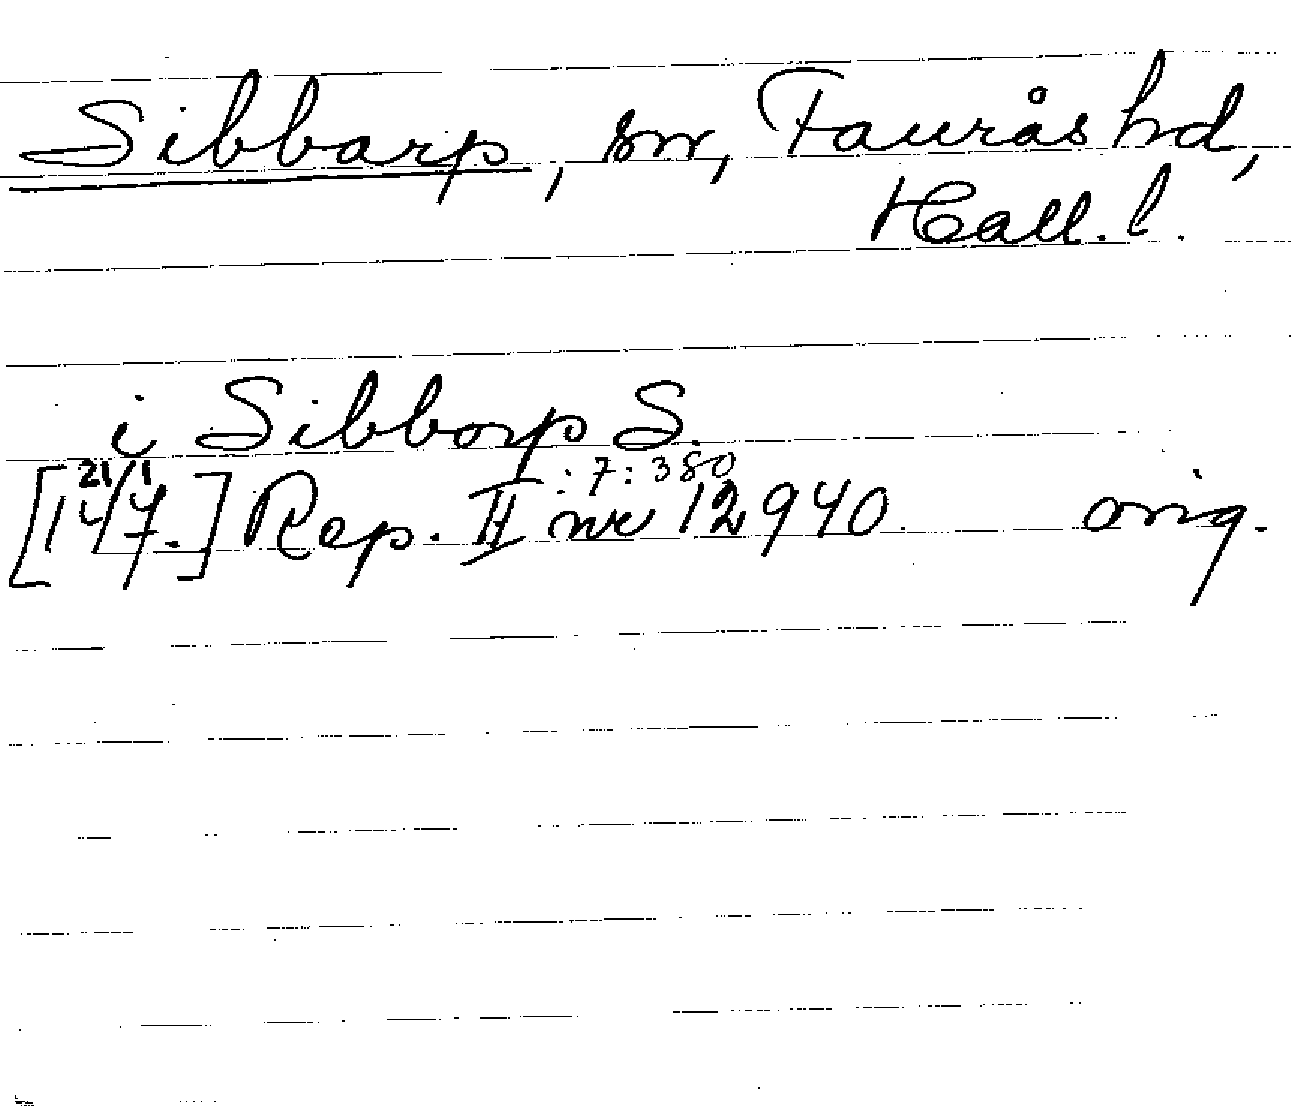 Sibbarp, sn, Faurås hd,
Hall. l.
i Sibborp S.
21/1 : 7: 380
[14/7.] Rep. II nr 12940 orig.